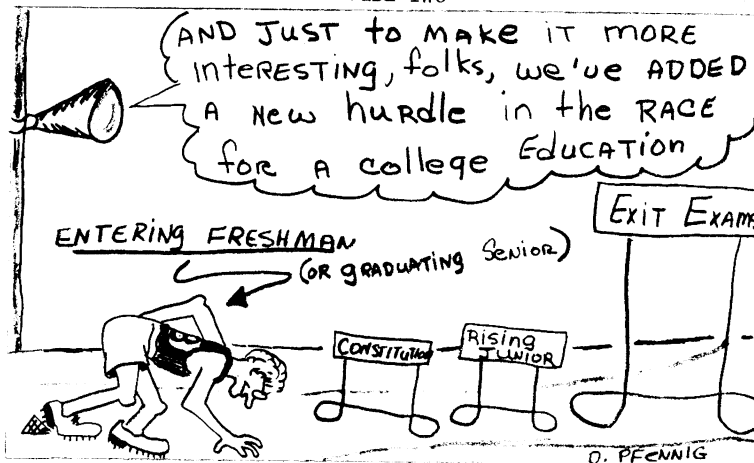 AND JUST to MAKE iT MORE
interESTING, folks, we've ADDED
A New huRdle in the RACE
foR A college EducATion
EXiT EXAM
ENTERiNG FRESHMAN
(OR gRADUATiNG SENiOR)
CONSTiTUTiON
Rising
JUNiOR
D. PFENNiG